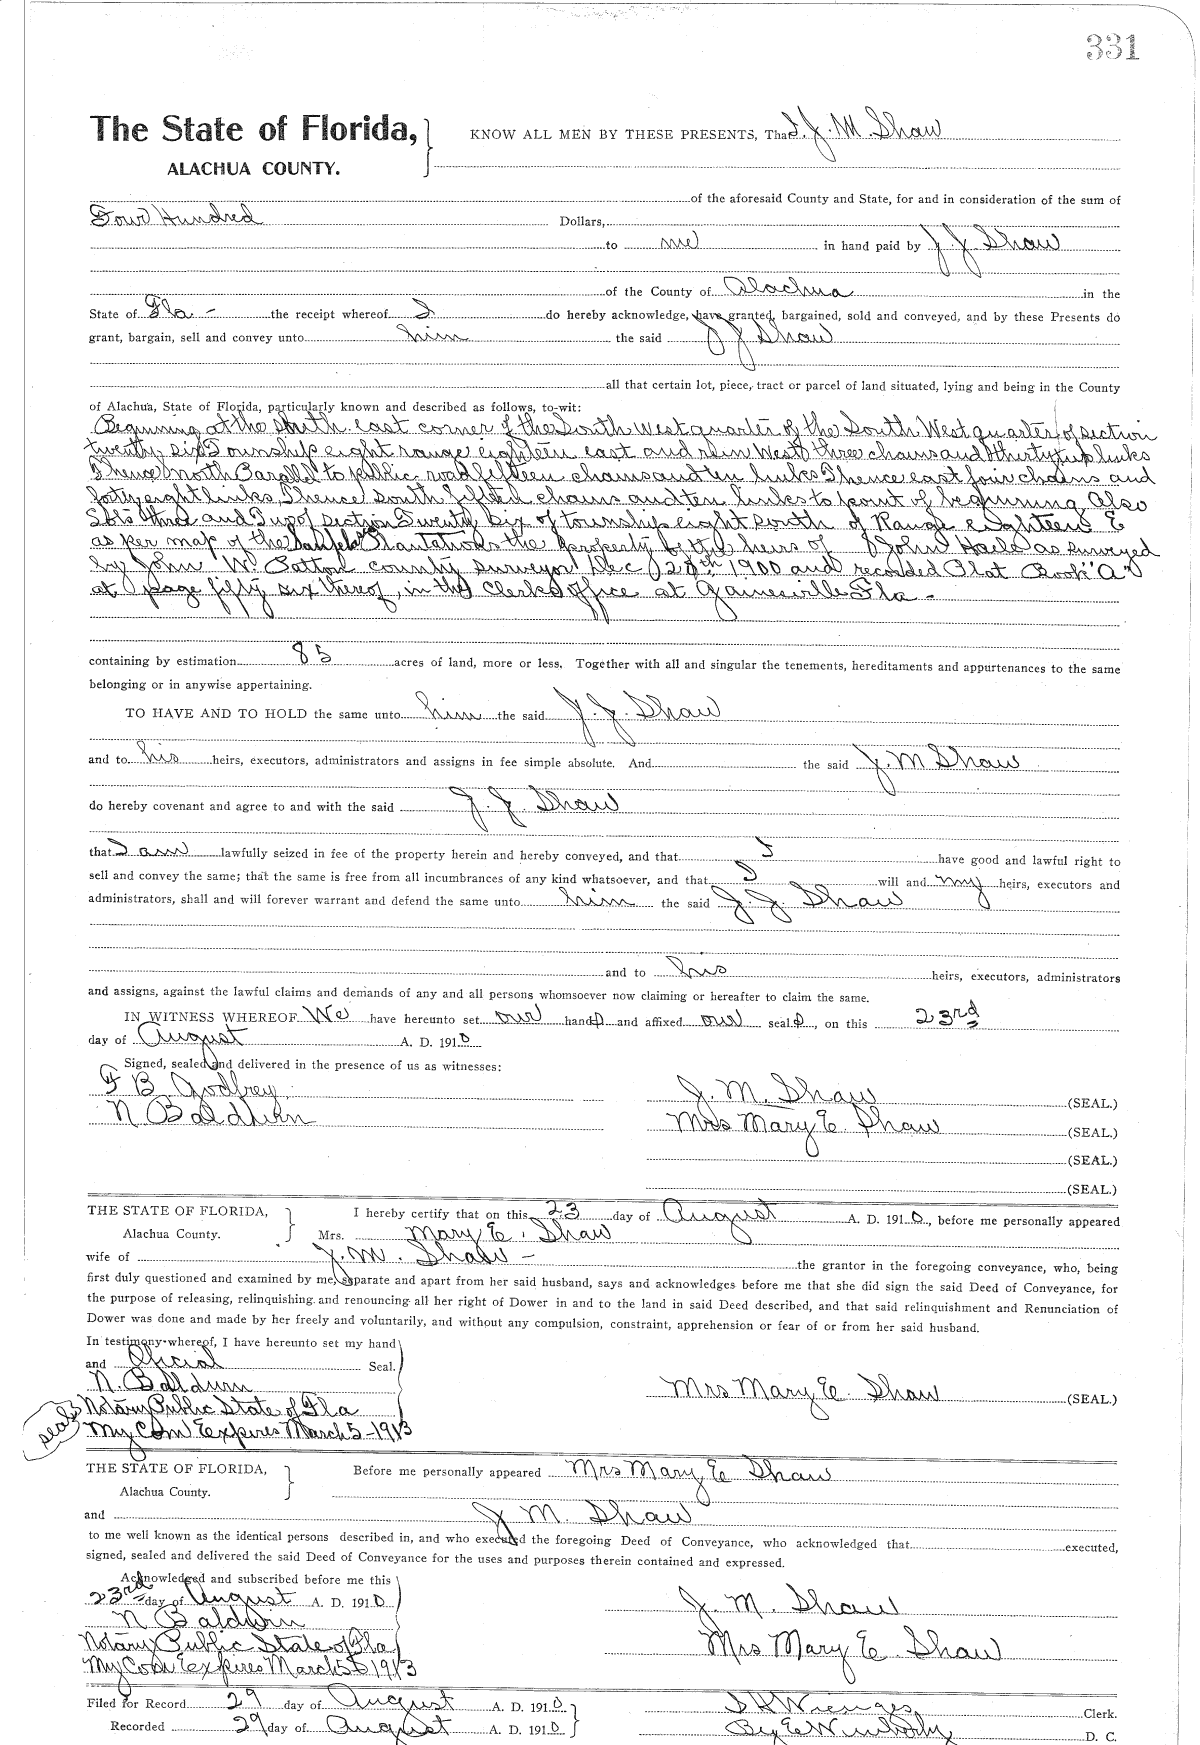 331
The State of Florida,
ALACHUA COUNTY.
KNOW ALL MEN BY THESE PRESENTS, That I, J. M. Shaw
of the aforesaid County and State, for and in consideration of the sum of
Four Hundred Dollars,
to me in hand paid by J J Shaw
of the County of Alachua in the
State of Fla - the receipt whereof I do hereby acknowledge, have granted, bargained, sold and conveyed, and by these Presents do
grant, bargain, sell and convey unto him the said J J Shaw
all that certain lot, piece, tract or parcel of land situated, lying and being in the County
of Alachua, State of Florida, particularly known and described as follows, to-wit:
Beginning at the south east corner of the South West quarter of the South West quarter of section
twenty six Township eight range eighteen east and run West three chains and thirty links
Thence north Parallel to public road fifteen chains and ten links Thence east four chains and
forty eight links, Thence south fifteen chains and ten links to point of beginning Also
three and Two of section Twenty six of township eight south of Range eighteen E
as per map of the Plantations the property of the heirs of John Haile as surveyed
by John W Patton county surveyor Dec 28th 1900 and recorded Plat Book "A"
at page fifty six thereof, in the Clerks office at Gainesville Fla -
containing by estimation 85 acres of land, more or less. Together with all and singular the tenements, hereditaments and appurtenances to the same
belonging or in anywise appertaining.
TO HAVE AND TO HOLD the same unto him the said J. J. Shaw
and to his heirs, executors, administrators and assigns in fee simple absolute. And the said J. M Shaw
do hereby covenant and agree to and with the said J. J. Shaw
that I am lawfully seized in fee of the property herein and hereby conveyed, and that I have good and lawful right to
sell and convey the same; that the same is free from all incumbrances of any kind whatsoever, and that I will and my heirs, executors and
administrators, shall and will forever warrant and defend the same unto him the said J. J. Shaw
and to his heirs, executors, administrators
and assigns, against the lawful claims and demands of any and all persons whomsoever now claiming or hereafter to claim the same.
IN WITNESS WHEREOF We have hereunto set our hands and affixed our seals, on this 23rd
day of August A. D. 1910
Signed, sealed and delivered in the presence of us as witnesses:
F B Godfrey
N Baldwin
J. M. Shaw (SEAL.)
Mrs Mary E Shaw (SEAL.)
(SEAL.)
(SEAL.)
THE STATE OF FLORIDA,
Alachua County.
I hereby certify that on this 23 day of August A. D. 1910, before me personally appeared
Mrs. Mary E. Shaw
wife of J. M. Shaw - the grantor in the foregoing conveyance, who, being
first duly questioned and examined by me, separate and apart from her said husband, says and acknowledges before me that she did sign the said Deed of Conveyance, for
the purpose of releasing, relinquishing and renouncing all her right of Dower in and to the land in said Deed described, and that said relinquishment and Renunciation of
Dower was done and made by her freely and voluntarily, and without any compulsion, constraint, apprehension or fear of or from her said husband.
In testimony whereof, I have hereunto set my hand
and Oficial Seal.
N. Baldwin
Notary Public State of Fla
My Com Expires March 5-1913
seal
Mrs Mary E. Shaw (SEAL)
THE STATE OF FLORIDA,
Alachua County.
Before me personally appeared Mrs Mary E Shaw
and J M. Shaw
to me well known as the identical persons described in, and who executed the foregoing Deed of Conveyance, who acknowledged that executed,
signed, sealed and delivered the said Deed of Conveyance for the uses and purposes therein contained and expressed.
Acknowledged and subscribed before me this
23rd day of August A. D. 1910
N Baldwin
Notary Public State of Fla
My Com Expires March 5 1913
J. M. Shaw
Mrs Mary E Shaw
Filed for Record 29 day of August A. D. 1910
Recorded 29 day of August A. D. 1910
S H Wienges Clerk.
By E D. C.